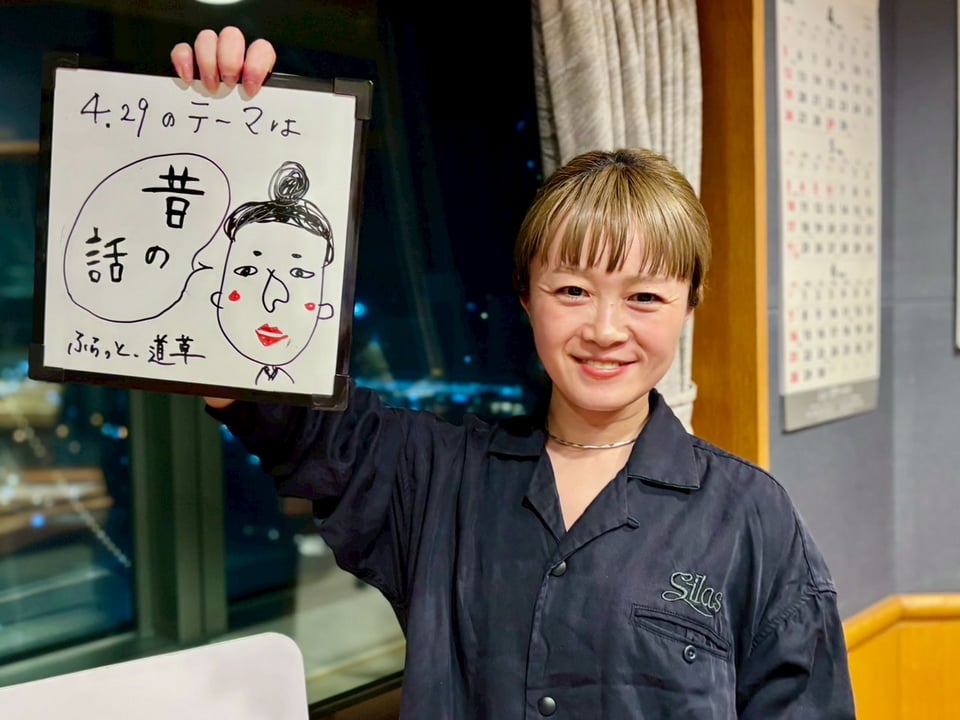 4.29のテーマは
昔
話の
ふらっと、道草
Silas